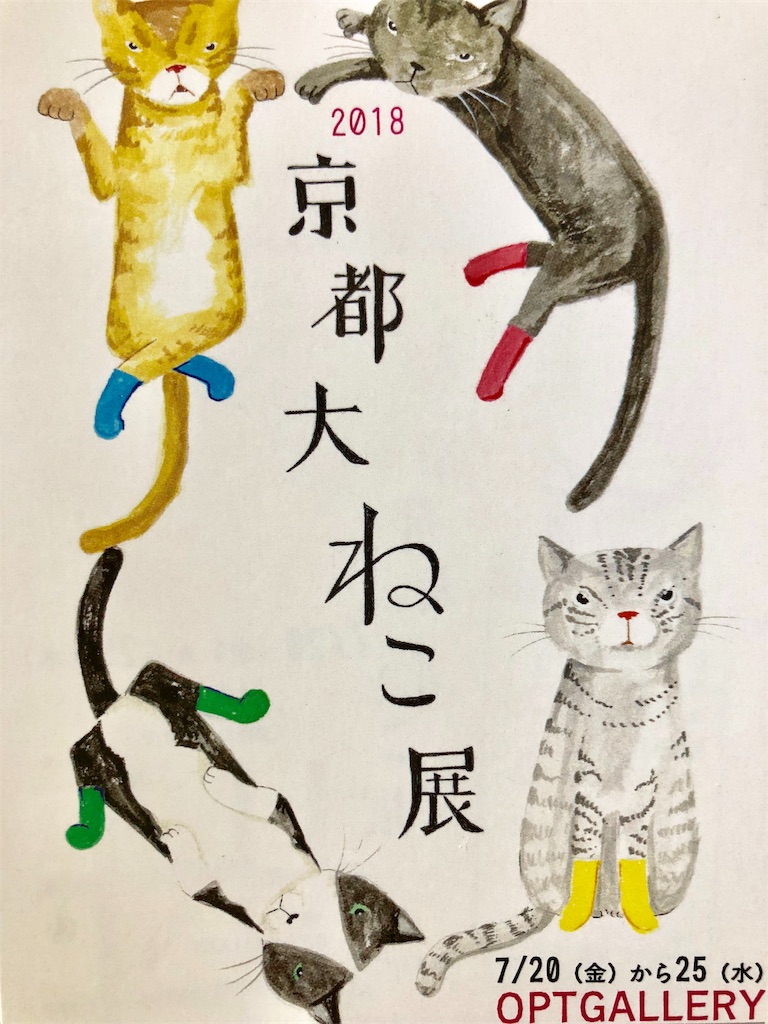 2018
京都大ねこ展
7/20（金）から25（水）
OPTGALLERY